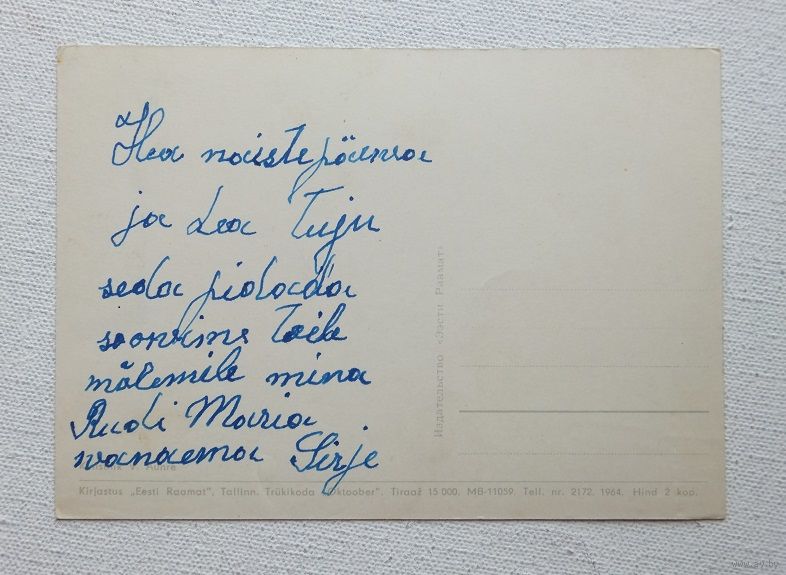 Hea naistepäeva
ja hea tuju
seda pidada
soovime teile
mõlemile mina
Rudi Maria
vanaema Sirje
Kirjastus „Eesti Raamat", Tallinn. Trükikoda „Oktoober". Tiraaž 15 000. MB-11059. Tell. nr. 2172. 1964. Hind 2 kop.
Издательство «Ээсти Раамат»
www.ay.by